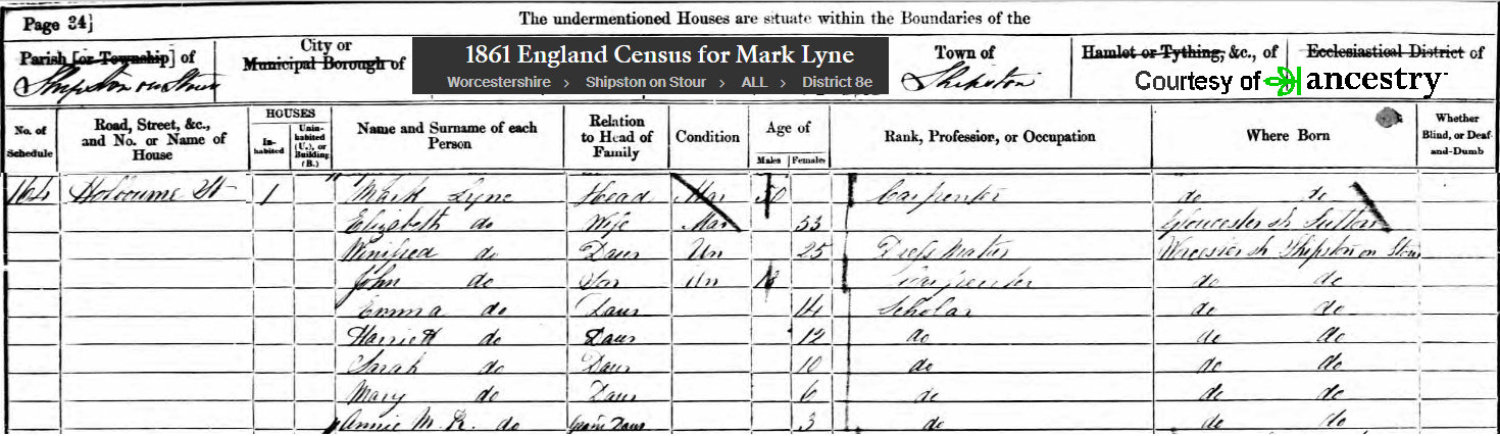 Page 34]
The undermentioned Houses are situate within the Boundaries of the
Parish [or Township] of
City or
Municipal Borough of
Town of
Hamlet or Tything, &c., of
Ecclesiastical District of
1861 England Census for Mark Lyne
Worcestershire > Shipston on Stour > ALL > District 8e
Shipston on Stour
Shipston
Courtesy of ancestry
No. of Schedule
Road, Street, &c., and No. or Name of House
HOUSES
In-habited
Unin-habited (U.), or Building (B.)
Name and Surname of each Person
Relation to Head of Family
Condition
Age of
Males Females
Rank, Profession, or Occupation
Where Born
Whether Blind, or Deaf-and-Dumb
164 1 Mark Lyne Head Mar 50 Carpenter do do
Elizabeth do Wife Mar 53 Gloucestersh
Winifred do Daur Un 25 Dress Maker Worcestersh Shipston on Stour
John do Son Un 18 Carpenter do do
Emma do Daur 14 Scholar do do
Harriett do Daur 12 do do do
Sarah do Daur 10 do do do
Mary do Daur 6 do do do
Annie M. R. do Gran Daur 3 do do do